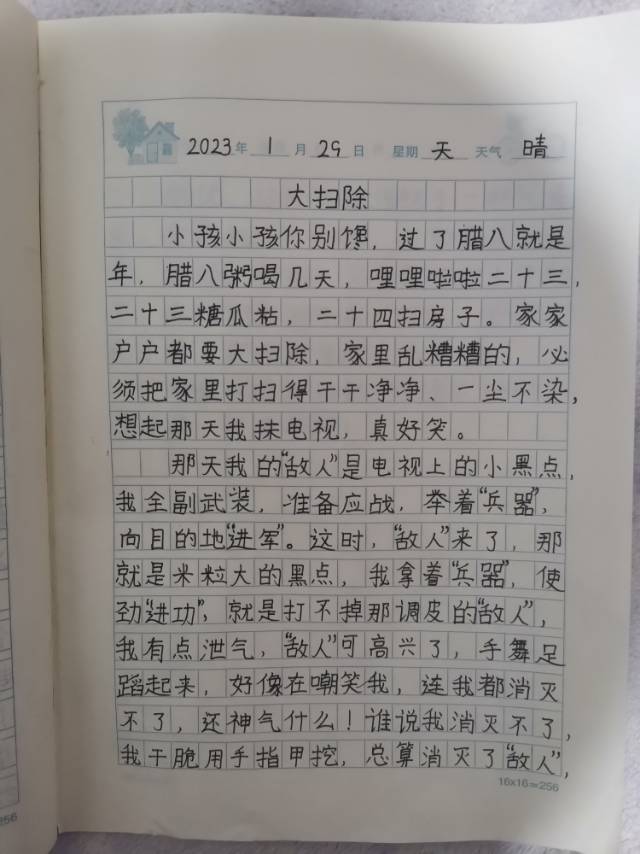 2023年 1 月 29 日 星期 天 天气 晴
大扫除
小孩小孩你别馋，过了腊八就是
年，腊八粥喝几天，哩哩啦啦二十三，
二十三糖瓜粘，二十四扫房子。家家
户户都要大扫除，家里乱糟糟的，必
须把家里打扫得干干净净、一尘不染，
想起那天我抹电视，真好笑。
那天我的“敌人”是电视上的小黑点，
我全副武装，准备应战，举着“兵器”，
向目的地“进军”。这时，“敌人”来了，那
就是米粒大的黑点，我拿着“兵器”，使
劲“进功”，就是打不掉那调皮的“敌人”，
我有点泄气，“敌人”可高兴了，手舞足
蹈起来，好像在嘲笑我，连我都消灭
不了，还神气什么！谁说我消灭不了，
我干脆用手指甲挖，总算消灭了“敌人”，
16x16=256
256